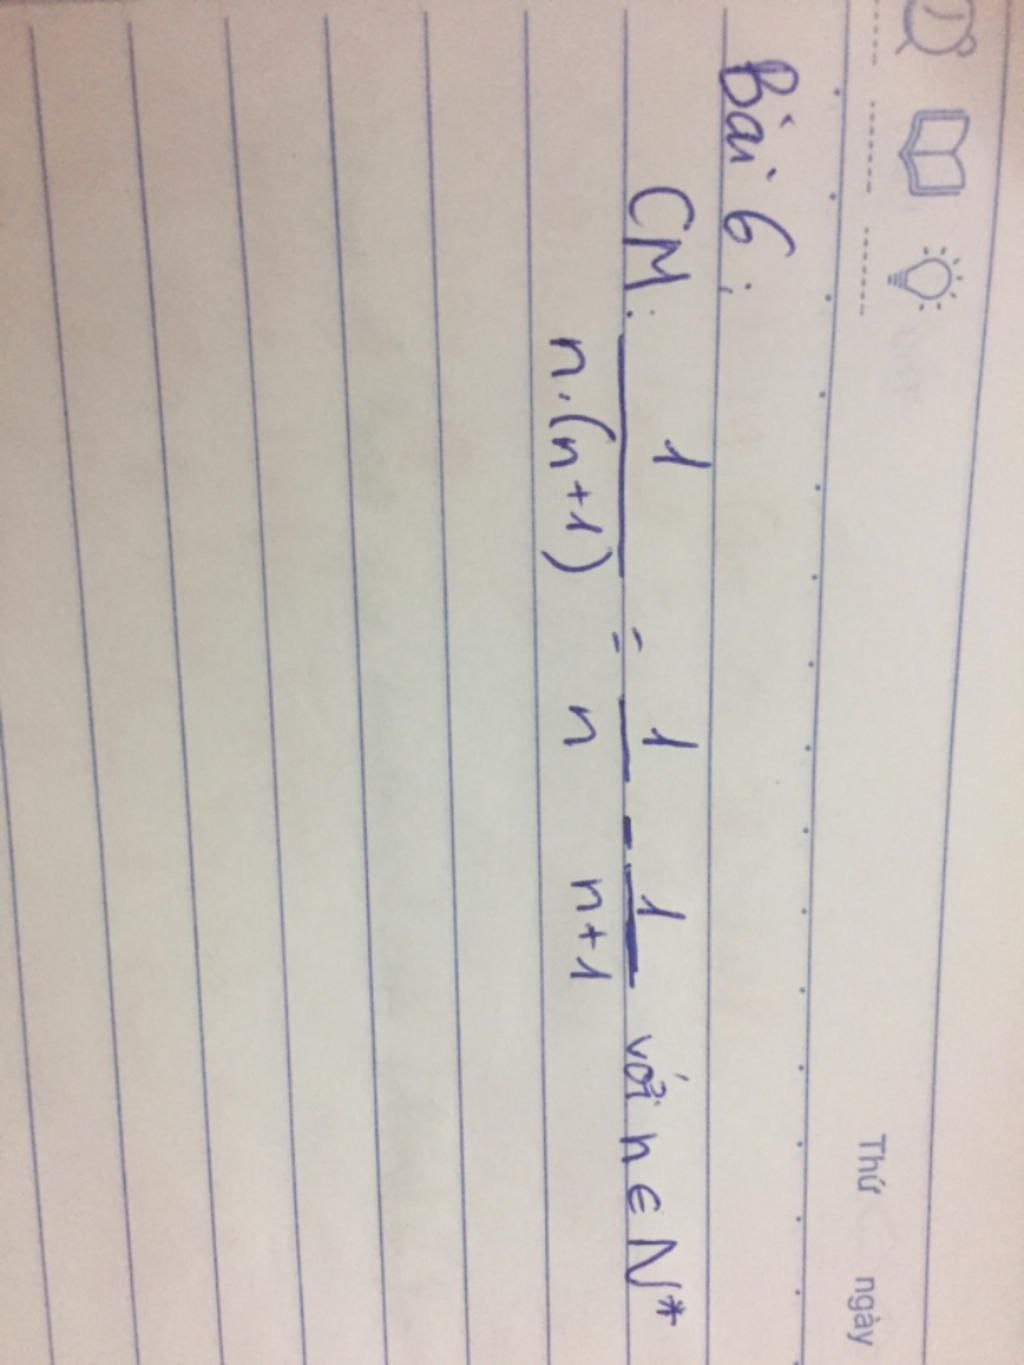 Thứ ngày
Bài 6:
CM: 1/n.(n+1) = 1/n - 1/n+1 với n ∈ N*